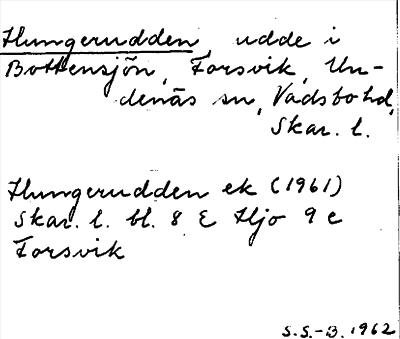 Hungerudden, udde i
Bottensjön, Forsvik, Un-
denäs sn, Vadsbo hd,
Skar. l.
Hungerudden ek (1961)
Skar. l. bl. 8 E Hjo 9 e
Forsvik
S.S.-B. 1962